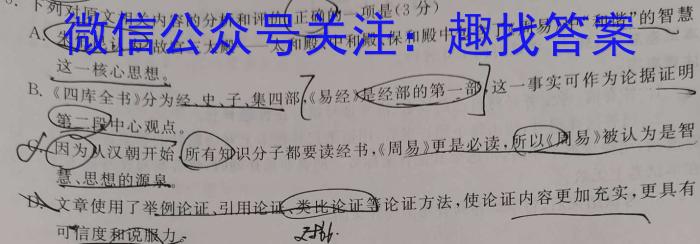 下列对原文相关内容的分析和评价,正确的一项是(3分)
微信公众号关注:趣找答案
A. 和殿 保和殿中 易》中“和谐”的智慧
这一核心思想。
B.《四库全书》分为经、史、子、集四部,《易经》是经部的第一部,这一事实可作为论据证明
第二段中心观点。
因为从汉朝开始,所有知识分子都要读经书,《周易》更是必读,所以《周易》被认为是智
慧、思想的源泉。
D.文章使用了举例论证、引用论证、类比论证等论证方法,使论证内容更加充实,更具有
可信度和说服力。